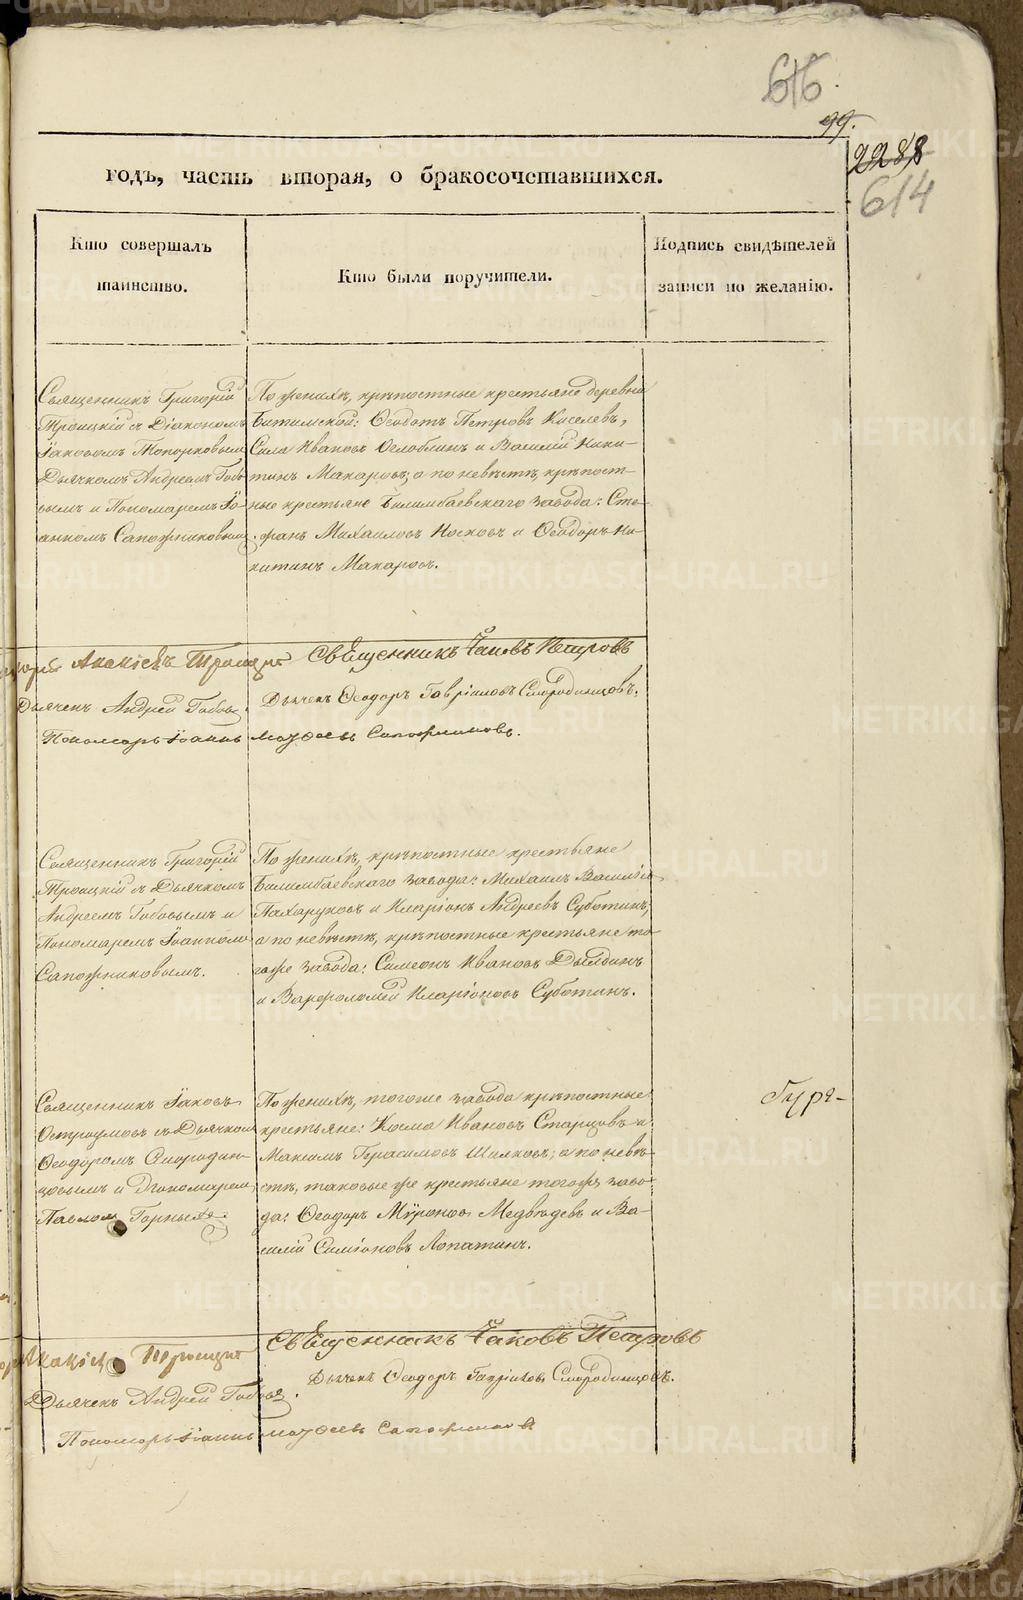 616.
99.
2288
614
годъ, часть вторая, о бракосочетавшихся.
Кто совершалъ
таинство.
Кто были поручители.
Подпись свидѣтелей
записи по желанію.
Священникъ Григорій
Троицкій съ Діакономъ
Іаковомъ Топорковым
Дьячкомъ Андреемъ Гобо-
вымъ и Пономаремъ Іо-
анномъ Сапожниковым.
По женихѣ, крѣпостные крестьяне деревни
Битимской: Ѳеодотъ Петровъ Киселевъ,
Сила Ивановъ Ослоблинъ и Василій Ники-
тинъ Макаровъ; а по невѣстѣ, крѣпост-
ные крестьяне Билимбаевскаго завода: Сте-
фанъ Михаиловъ Носковъ и Ѳеодоръ Ни-
китинъ Макаровъ.
Акакіевъ Троицкій
Священникъ Іаковъ Петровъ
Дьячекъ Андрей Гобовъ
Дьячекъ Ѳеодоръ Гавріиловъ Смородинцовъ.
Пономарь Іоаннъ Матѳеевъ Сапожниковъ.
Священникъ Григорій
Троицкій съ Дьячкомъ
Андреемъ Гобовымъ и
Пономаремъ Іоанномъ
Сапожниковымъ.
По женихѣ, крѣпостные крестьяне
Билимбаевскаго завода: Михаилъ Васильев
Пахаруковъ и Иларіонъ Андреевъ Суботинъ,
а по невѣстѣ, крѣпостные крестьяне то-
гоже завода: Симеонъ Ивановъ Дылдинъ
и Варфоломей Иларіоновъ Суботинъ.
Священникъ Іаковъ
Остроумовъ съ Дьячкомъ
Ѳеодоромъ Смородин-
цовымъ и Пономарем
Павломъ Горныхъ.
По женихѣ, тогоже завода крѣпостные
крестьяне: Косма Ивановъ Старцовъ и
Максимъ Герасимовъ Шилковъ; а по невѣ-
стѣ, таковые же крестьяне тогожъ заво-
да: Ѳеодоръ Мѵроновъ Медвѣдевъ и Ва-
силій Симеоновъ Лопатинъ.
Акакіевъ Троицкій
Священникъ Іаковъ Петровъ
Дьячекъ Андрей Гобовъ.
Дьячекъ Ѳеодоръ Гавріиловъ Смородинцовъ.
Пономарь Іоаннъ Матѳеевъ Сапожниковъ
METRIKI.GASO-URAL.RU